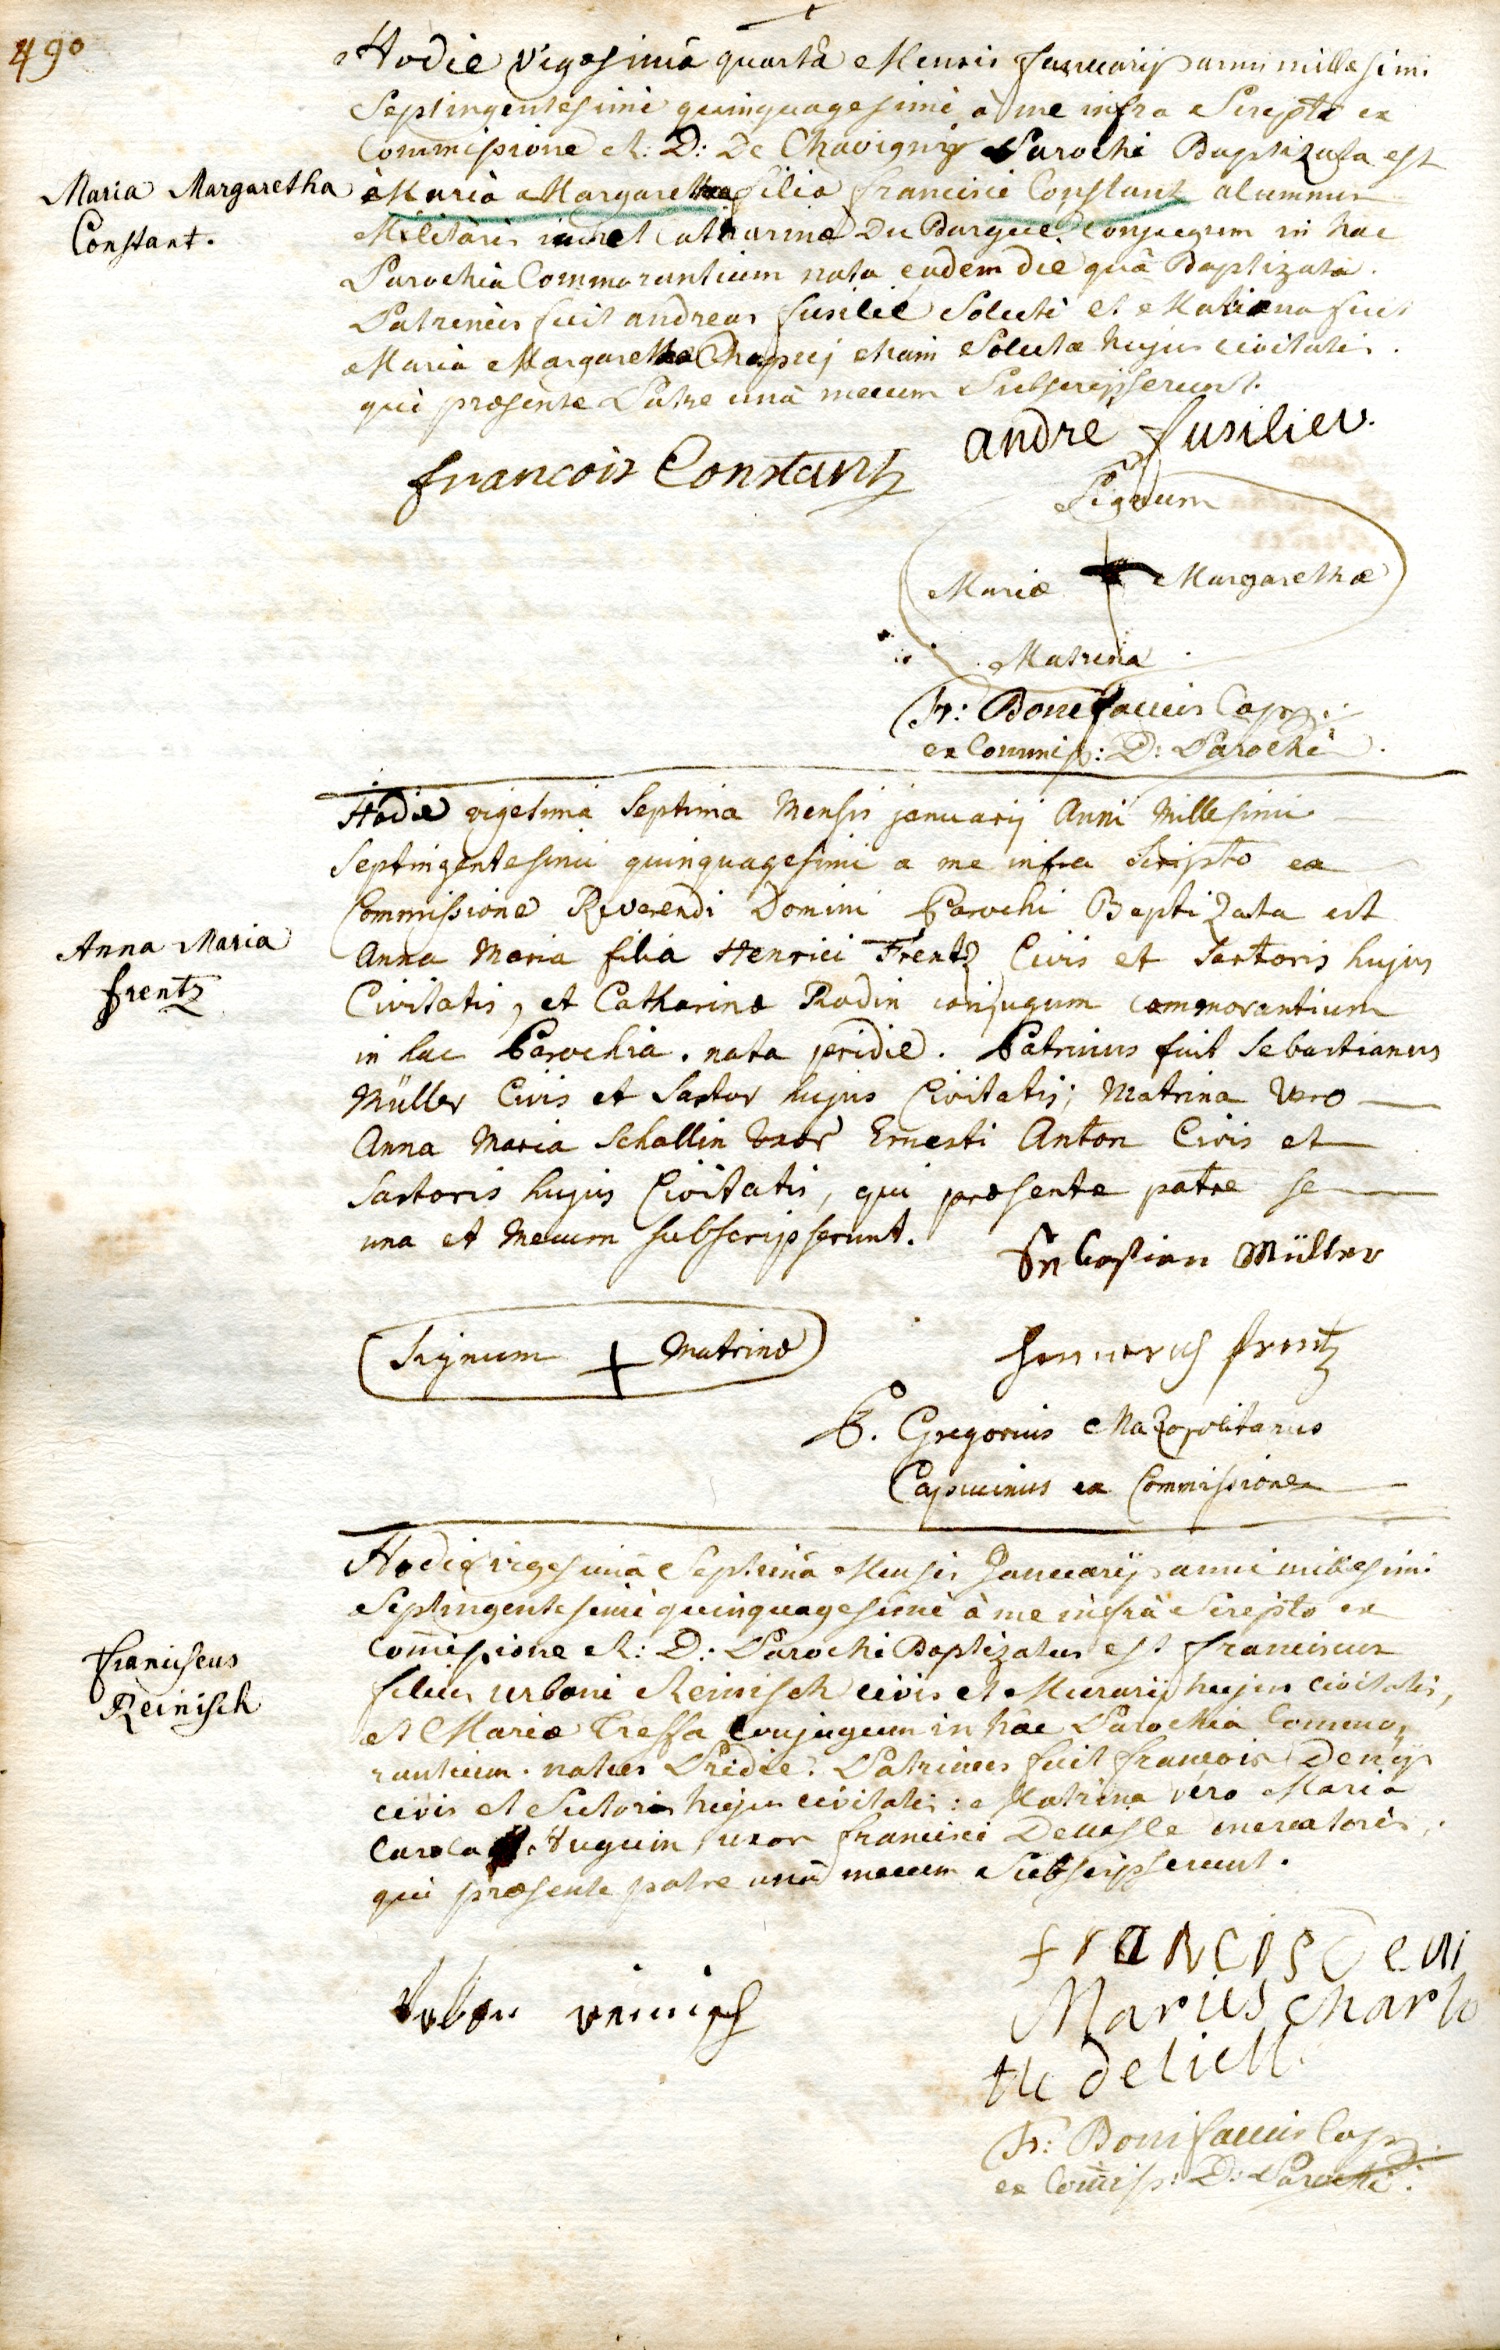 490
Hodie vigesimâ quartâ Mensis Januarij anni millesimi
Septingentesimi quinquagesimi à me infra Scripto ex
Commissione R: D: De Chavigny Parochi Baptizata est
Maria Margaretha
Constant.
Maria Margaretha filia francisci Constant alumnus
Militaris et Catharinæ Du Barque conjugum in hac
Parochia Commorantium nata eadem die quâ Baptizata.
Patrinus fuit andreas fusilié Soluti et Matrina fuit
Maria Margaretha Soluta hujus civitatis.
qui præsente Patre unâ mecum Subscripserunt.
andré fusilier.
francois Constant
Signum
Mariæ Margarethæ
Matrina
Fr: Bonifacius Cap:
ex Commiss: D: Parochi.
Hodie vigesima Septima Mensis januarij Anni Millesimi
Septingentesimi quinquagesimi a me infra Scripto ex
Commissione Reverendi Domini Parochi Baptizata est
Anna Maria
frentz
Anna Maria filia Henrici Frentz Civis et Sartoris hujus
Civitatis, et Catharinæ Rodin conjugum commorantium
in hac Parochia. nata pridie. Patrinus fuit Sebastianus
Müller Civis et Sartor hujus Civitatis; Matrina Vero
Anna Maria Schallin Uxor Ernesti Anton Civis et
Sartoris hujus Civitatis, qui præsente patre se
una et Mecum subscripserunt.
Sebastian Müller
Signum Matrinæ
Hennerich frentz
P. Gregorius Mazopolitanus
Capucinus ex Commissione
Hodie vigesimâ Septimâ Mensis Januarij anni millesimi
Septingentesimi quinquagesimi à me infrà Scripto ex
Com̃issione R: D: Parochi Baptizatus est franciscus
Franciscus
Reinisch
filius urbani Reinisch civis et Murarij hujus civitatis,
et Mariæ Treffa Conjugum in hâc Parochia Commo,
rantium. natus Pridie. Patrinus fuit francois Denijs
civis et Sutoris hujus civitatis: Matrina vero Maria
Carola Huguin uxor francisci Delisle mercatoris,
qui præsente patre unâ mecum Subscripserunt.
francis Deni
Maries charlo
tte deliell
Urban reinisch
Fr: Bonifacius Cap:
ex Com̃iss: D: Parochi.